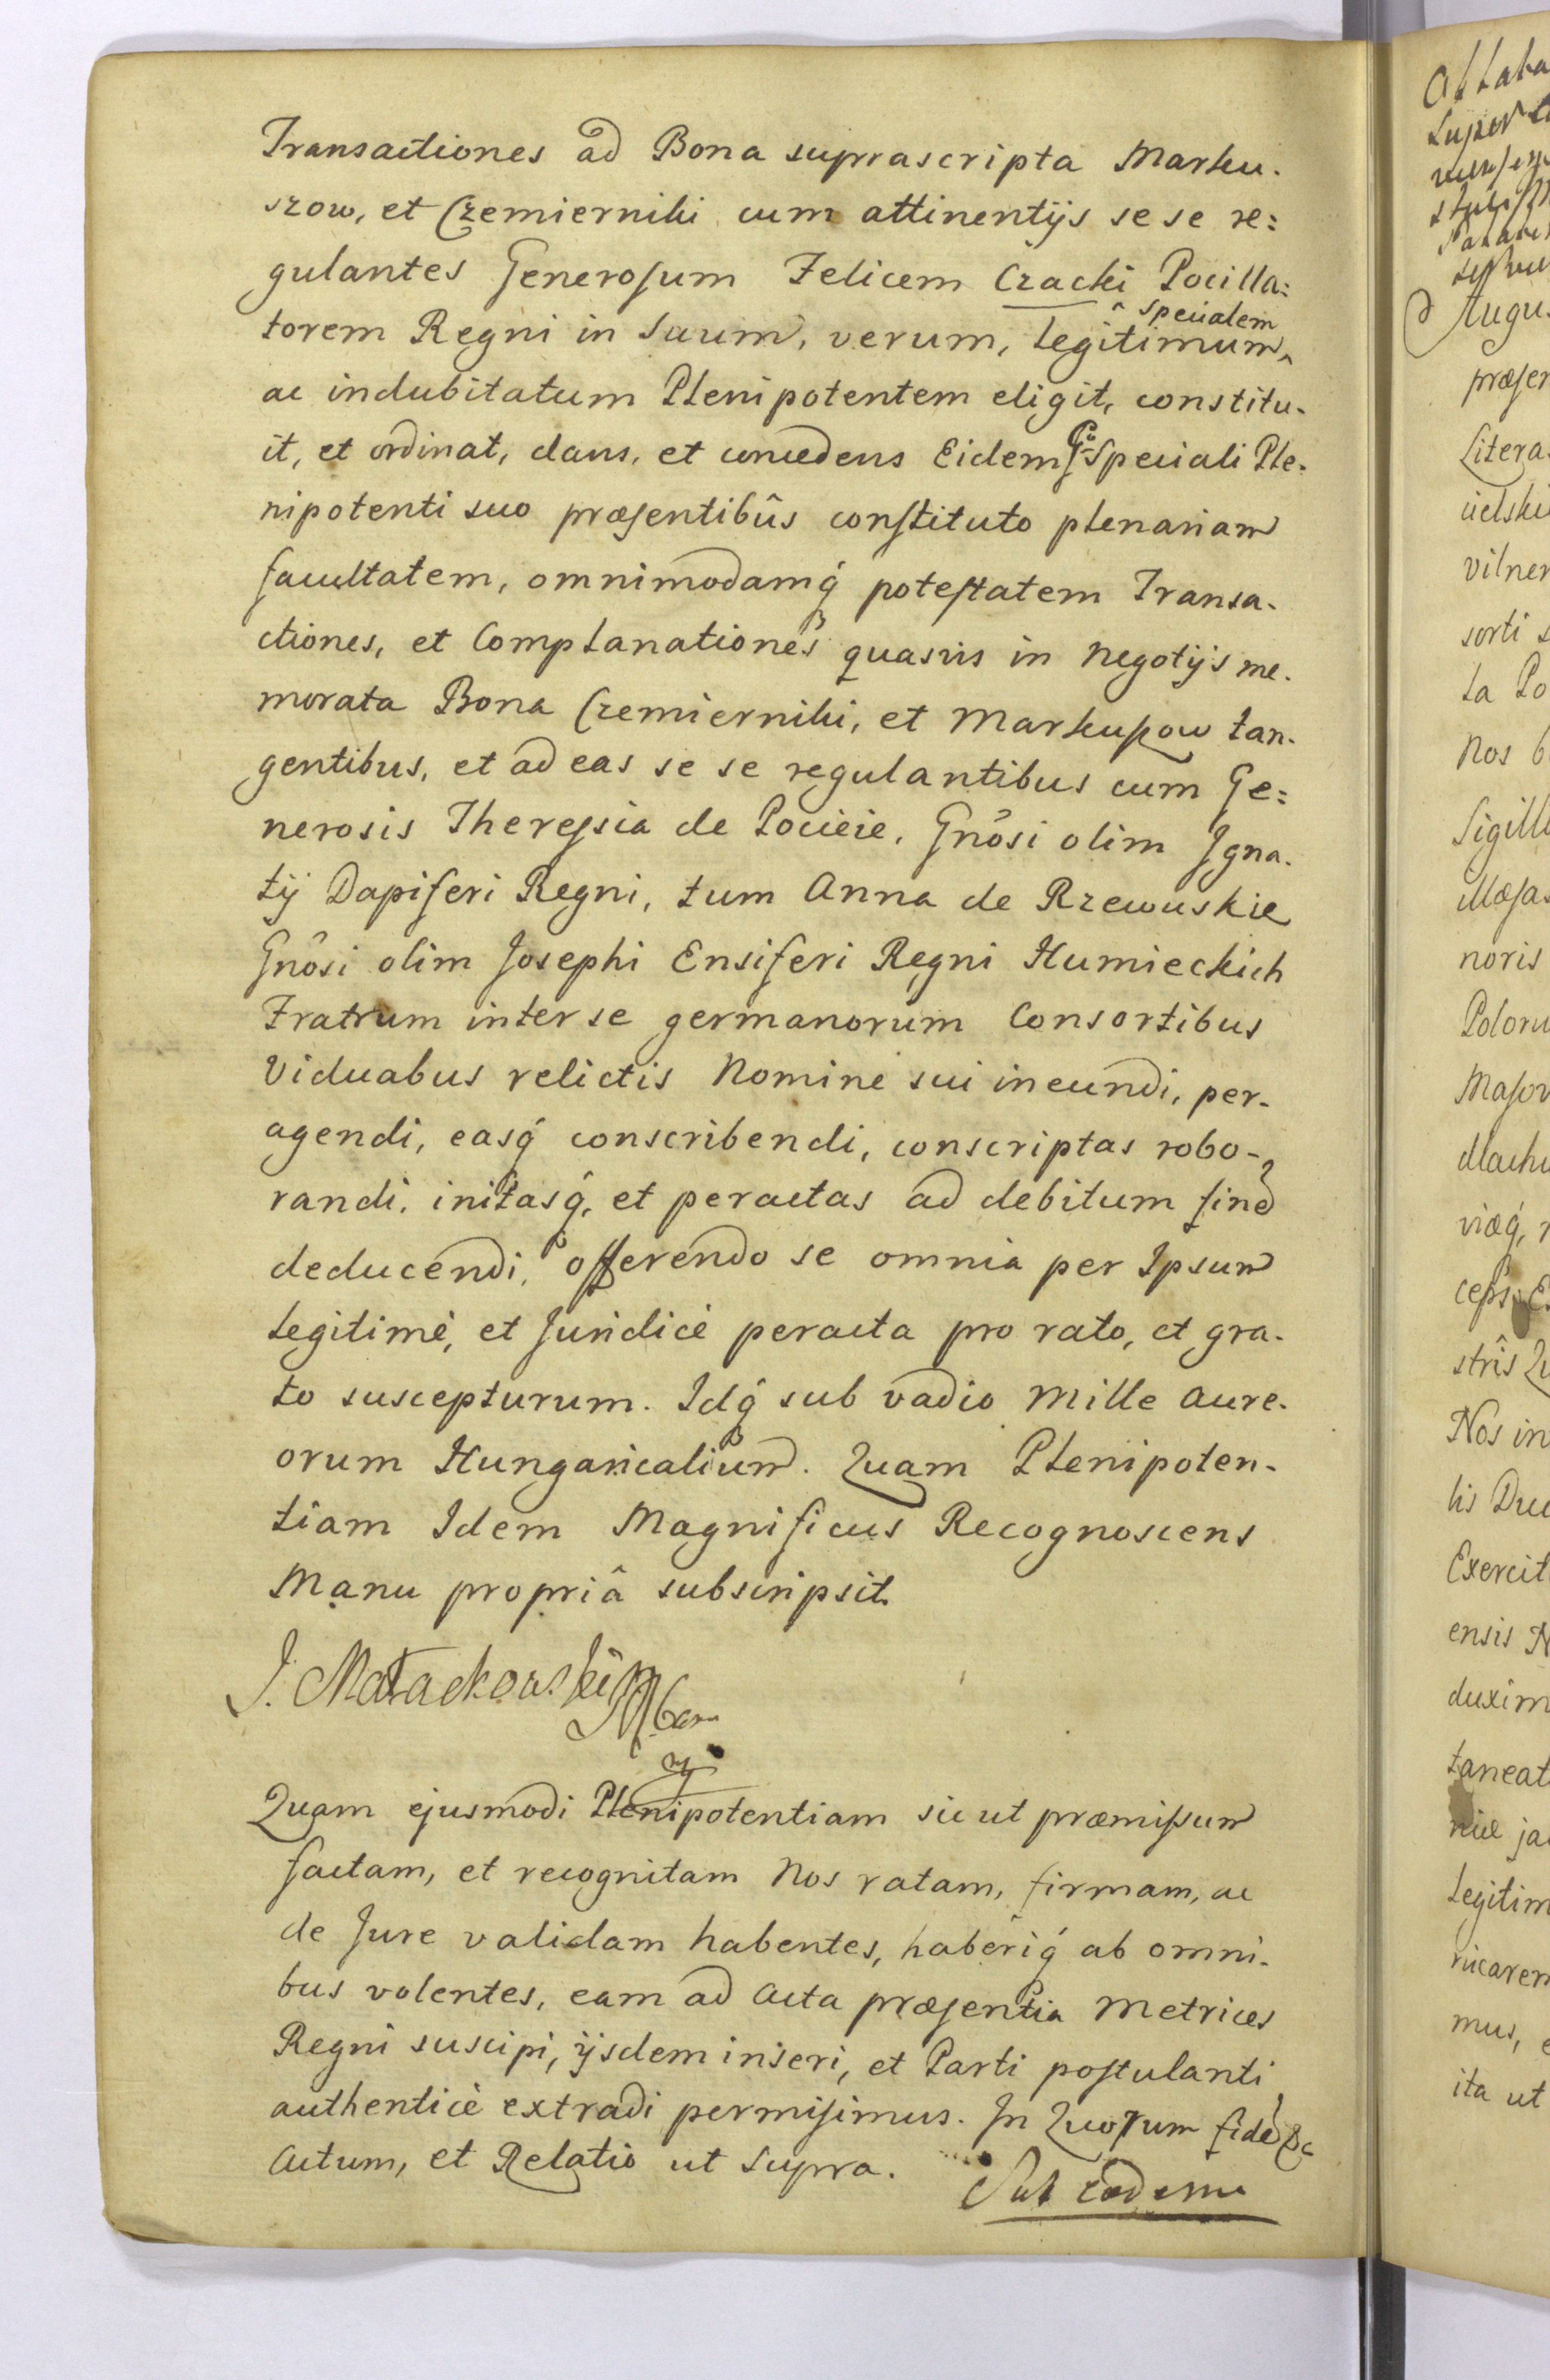 Transactiones ad Bona suprascripta Marku-
szow, et Czemierniki cum attinentijs se se re=
gulantes Generosum Felicem Cracki Pocilla=
torem Regni in Suum, verum, legitimum, ^ specialem
ac indubitatum Plenipotentem eligit, constitu-
it, et ordinat, dans, et concedens Eidem Speciali Ple-
nipotenti suo præsentibûs constituto plenariam
facultatem, omnimodamq́ potestatem Transa-
ctiones, et Complanationes quasvis in negotijs me-
morata Bona Czemierniki, et Markuszow tan-
gentibus, et ad eas se se regulantibus cum Ge=
nerosis Theressia de Pocieie, Gnôsi olim Igna-
tij Dapiferi Regni, tum Anna de Rzewuskie
Gnôsi olim Josephi Ensiferi Regni Humieckich
Fratrum inter se germanorum Consortibus
Viduabus relictis Nomine sui ineundi, per-
agendi, easq́ conscribendi, conscriptas robo-
randi, initasq́, et peractas ad debitum finẽ
deducendi, offerendo se omnia per Ipsum
legitimè, et Juridicè peracta pro rato, et gra-
to suscepturum. Idq́ sub vadio Mille Aure-
orum Hungaricalium. Quam Plenipoten-
tiam Idem Magnificus Recognoscens
Manu propriâ subscripsit.
J. Małachowski
Quam ejusmodi Plenipotentiam sic ut præmissum
factam, et recognitam Nos ratam, firmam, ac
de Jure validam habentes, haberiq́ ab omni-
bus volentes, eam ad Acta præsentia Metrices
Regni suscipi, ijsdem inseri, et Parti postulanti
authenticè extradi permisimus. In Quorum fidẽ &c
Actum, et Relatio ut supra.
Sub eodem
præsen
Litera
vilner
sorti
ta Po
Nos
Sigill
noris
Polor
viæq́,
Nos in
lis Duc
Exercit
ensis
duxim
taneat
legitim
mus,
ita ut